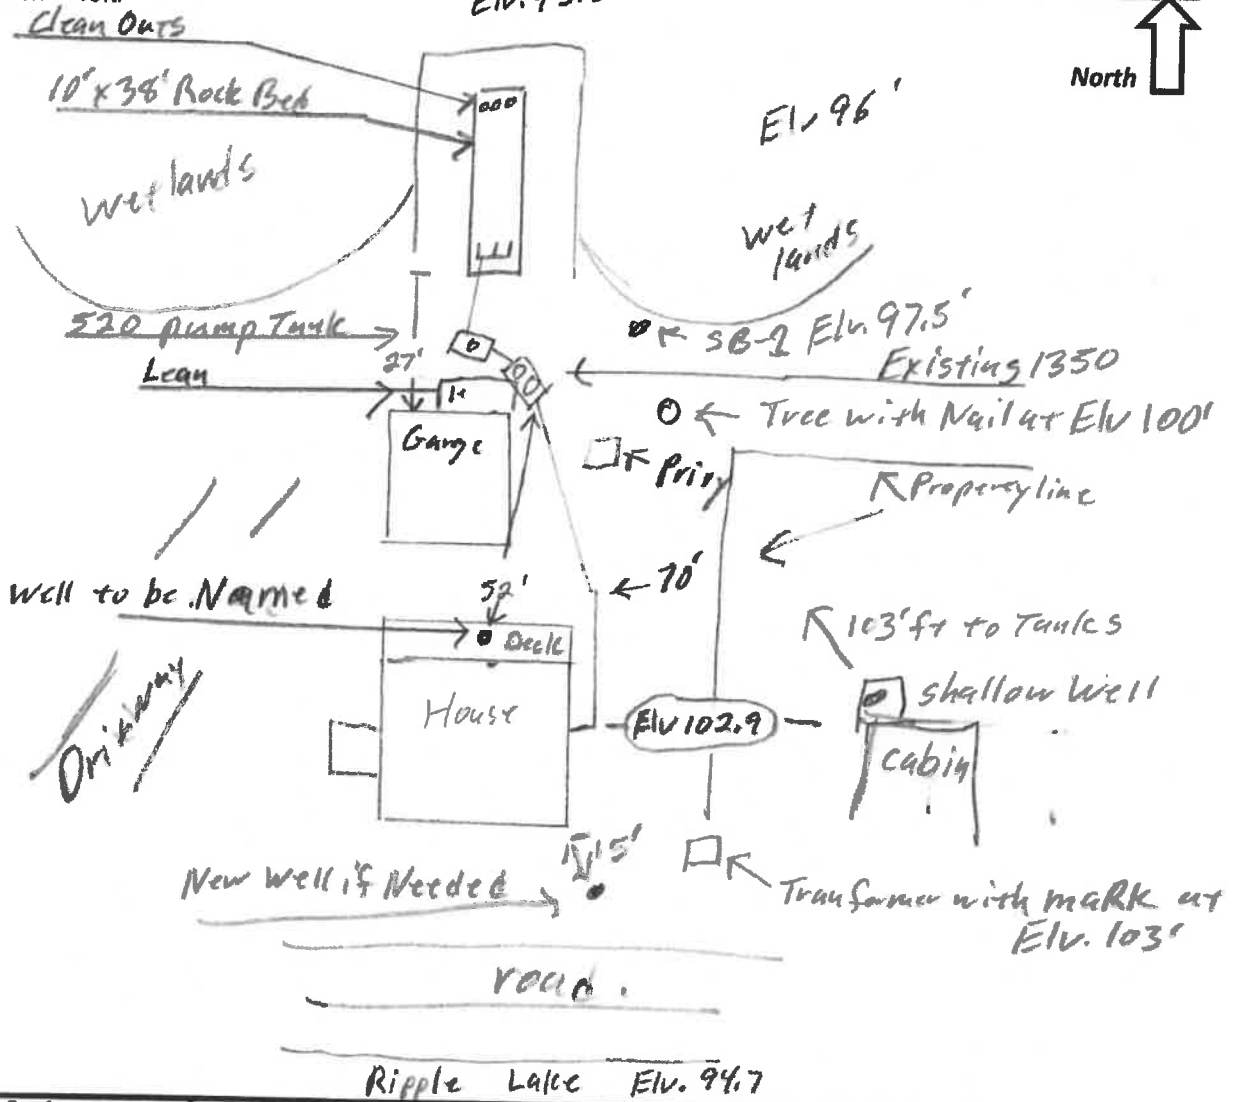 Clean Outs
North
10' x 38' Rock Bed
Elv 96'
wetlands
wet
lands
520 pump Tank
SB-1 Elv. 97.5'
27'
Existing 1350
Lean
Tree with Nail at Elv 100'
Garge
Privy
Property line
70'
52'
Well to be Named
Deck
103' ft to Tanks
shallow Well
House
Elv 102.9
cabin
Driveway
15'
New Well if Needed
Tranformer with maRk at
Elv. 103'
road.
Ripple Lake Elv. 94.7